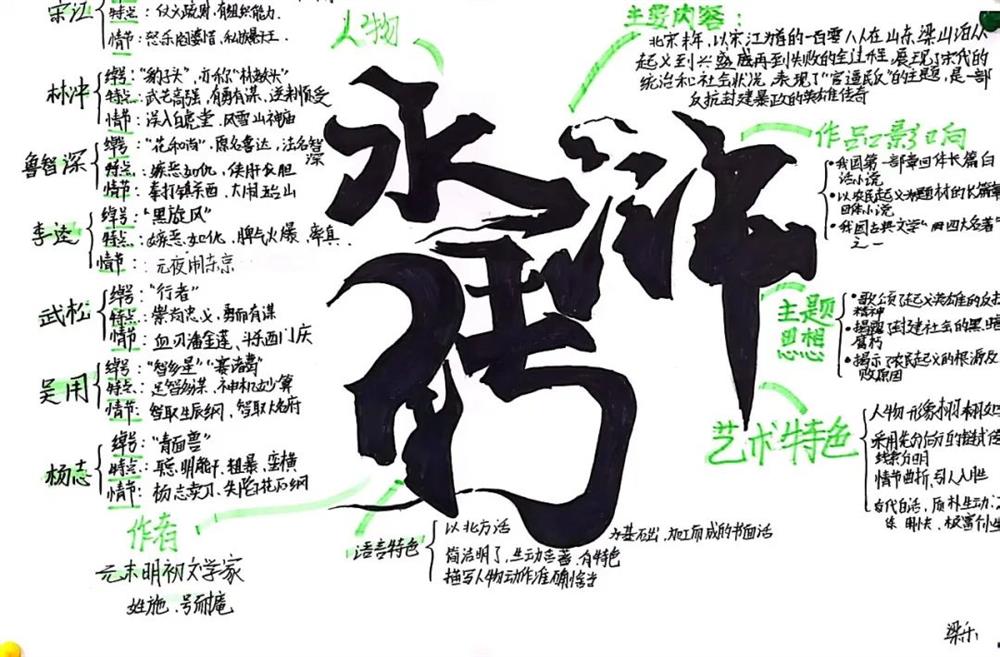 人物
宋江
特点：仗义疏财、有组织能力.
情节：怒杀阎婆惜，私放晁天王.
林冲
绰号："豹子头"，亦称"林教头"
特点：武艺高强，有勇有谋，逆来顺受
情节：误入白虎堂、风雪山神庙
鲁智深
绰号："花和尚"，原名鲁达，法名智深
特点：嫉恶如仇、侠肝义胆
情节：拳打镇关西、大闹五台山
李逵
绰号："黑旋风"
特点：嫉恶如仇，脾气火爆，率真.
情节：元夜闹东京
武松
绰号："行者"
特点：崇尚忠义，勇而有谋
情节：血刃潘金莲、斗杀西门庆
吴用
绰号："智多星""赛诸葛"
特点：足智多谋、神机妙算
情节：智取生辰纲、智取大名府
杨志
绰号："青面兽"
特点：聪明能干、粗暴、蛮横
情节：杨志卖刀、失陷花石纲
作者
元末明初文学家
姓施、号耐庵
水浒传
主要内容：
北宋末年，以宋江为首的一百零八人在山东梁山泊从
起义到兴盛盛再到失败的全过程，展现了宋代的
统治和社会状况，表现了"官逼民反"的主题，是一部
反抗封建暴政的英雄传奇
作品影响
•我国第一部章回体长篇白
话小说
•以农民起义为题材的长篇章
回体小说
•我国古典文学"四大名著"
之一
主题思想
•歌颂了起义英雄的反抗
精神
•揭露了封建社会的黑暗
腐朽
•揭示了农民起义的根源及
败原因
艺术特色
人物形象栩栩如
采用先分后合的链式
线索分明
情节曲折，引人入胜
古代白话，质朴生动
练明快，极富
语言特色
以北方话为基础出，加工而成的书面话
简洁明了，生动丰富，有特色
描写人物动作准确恰当
梁乐